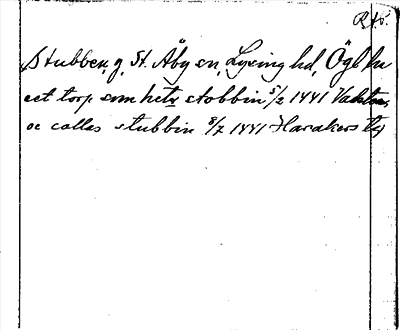 Stubben, g, St. Åby sn, Lysing hd, Ögl
eet torp som hetr stobbin 5/2 1441
oc callas stubbin 8/7 1441 Harakers